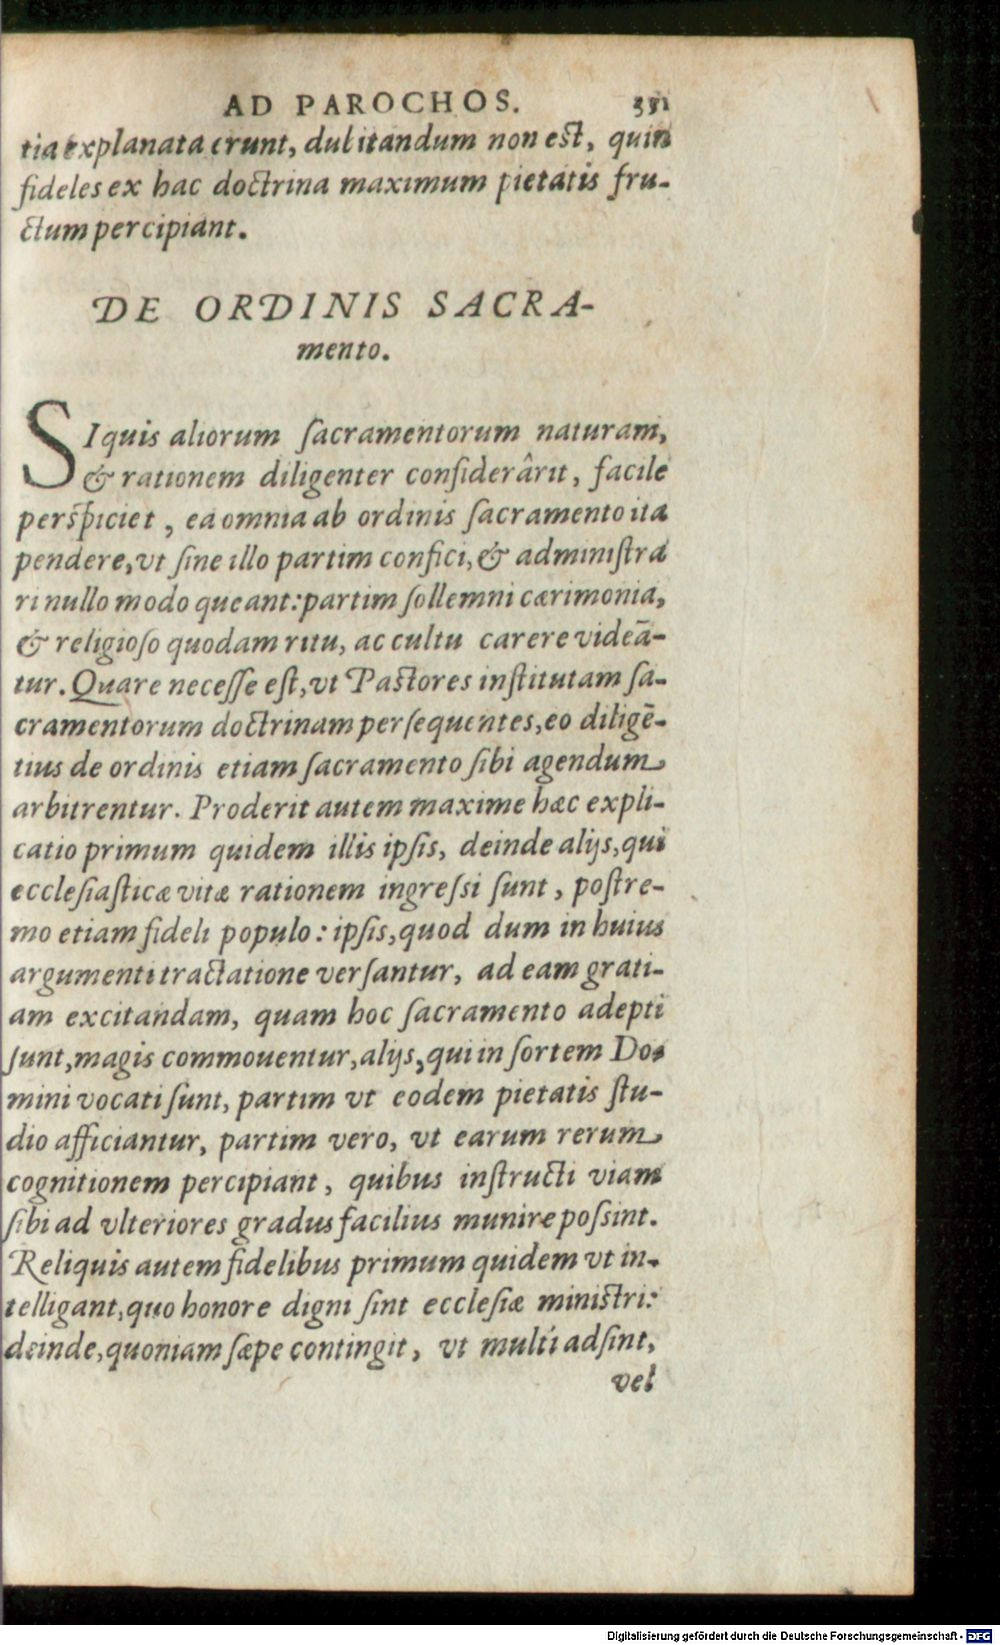 AD PAROCHOS. 331
tia explanata erunt, dubitandum non est, quin
fideles ex hac doctrina maximum pietatis fru-
ctum percipiant.
DE ORDINIS SACRA-
mento.
SI quis aliorum ſacramentorum naturam,
& rationem diligenter conſiderârit, facile
perſpiciet, ea omnia ab ordinis ſacramento ita
pendere, vt ſine illo partim confici, & adminiſtra
ri nullo modo queant: partim ſollemni cærimonia,
& religioſo quodam ritu, ac cultu carere videã-
tur. Quare neceſſe eſt, vt Paſtores inſtitutam ſa-
cramentorum doctrinam perſequentes, eo diligẽ-
tius de ordinis etiam ſacramento ſibi agendum
arbitrentur. Proderit autem maxime hæc expli-
catio primum quidem illis ipſis, deinde alijs, qui
eccleſiaſticæ vitæ rationem ingreſsi ſunt, poſtre-
mo etiam fideli populo: ipſis, quod dum in huius
argumenti tractatione verſantur, ad eam grati-
am excitandam, quam hoc ſacramento adepti
ſunt, magis commouentur, alijs, qui in ſortem Do-
mini vocati ſunt, partim vt eodem pietatis ſtu-
dio afficiantur, partim vero, vt earum rerum
cognitionem percipiant, quibus inſtructi viam
ſibi ad vlteriores gradus facilius munire poſsint.
Reliquis autem fidelibus primum quidem vt in-
telligant, quo honore digni ſint eccleſiæ miniſtri:
deinde, quoniam ſæpe contingit, vt multi adſint,
vel
Digitalisierung gefördert durch die Deutsche Forschungsgemeinschaft - DFG